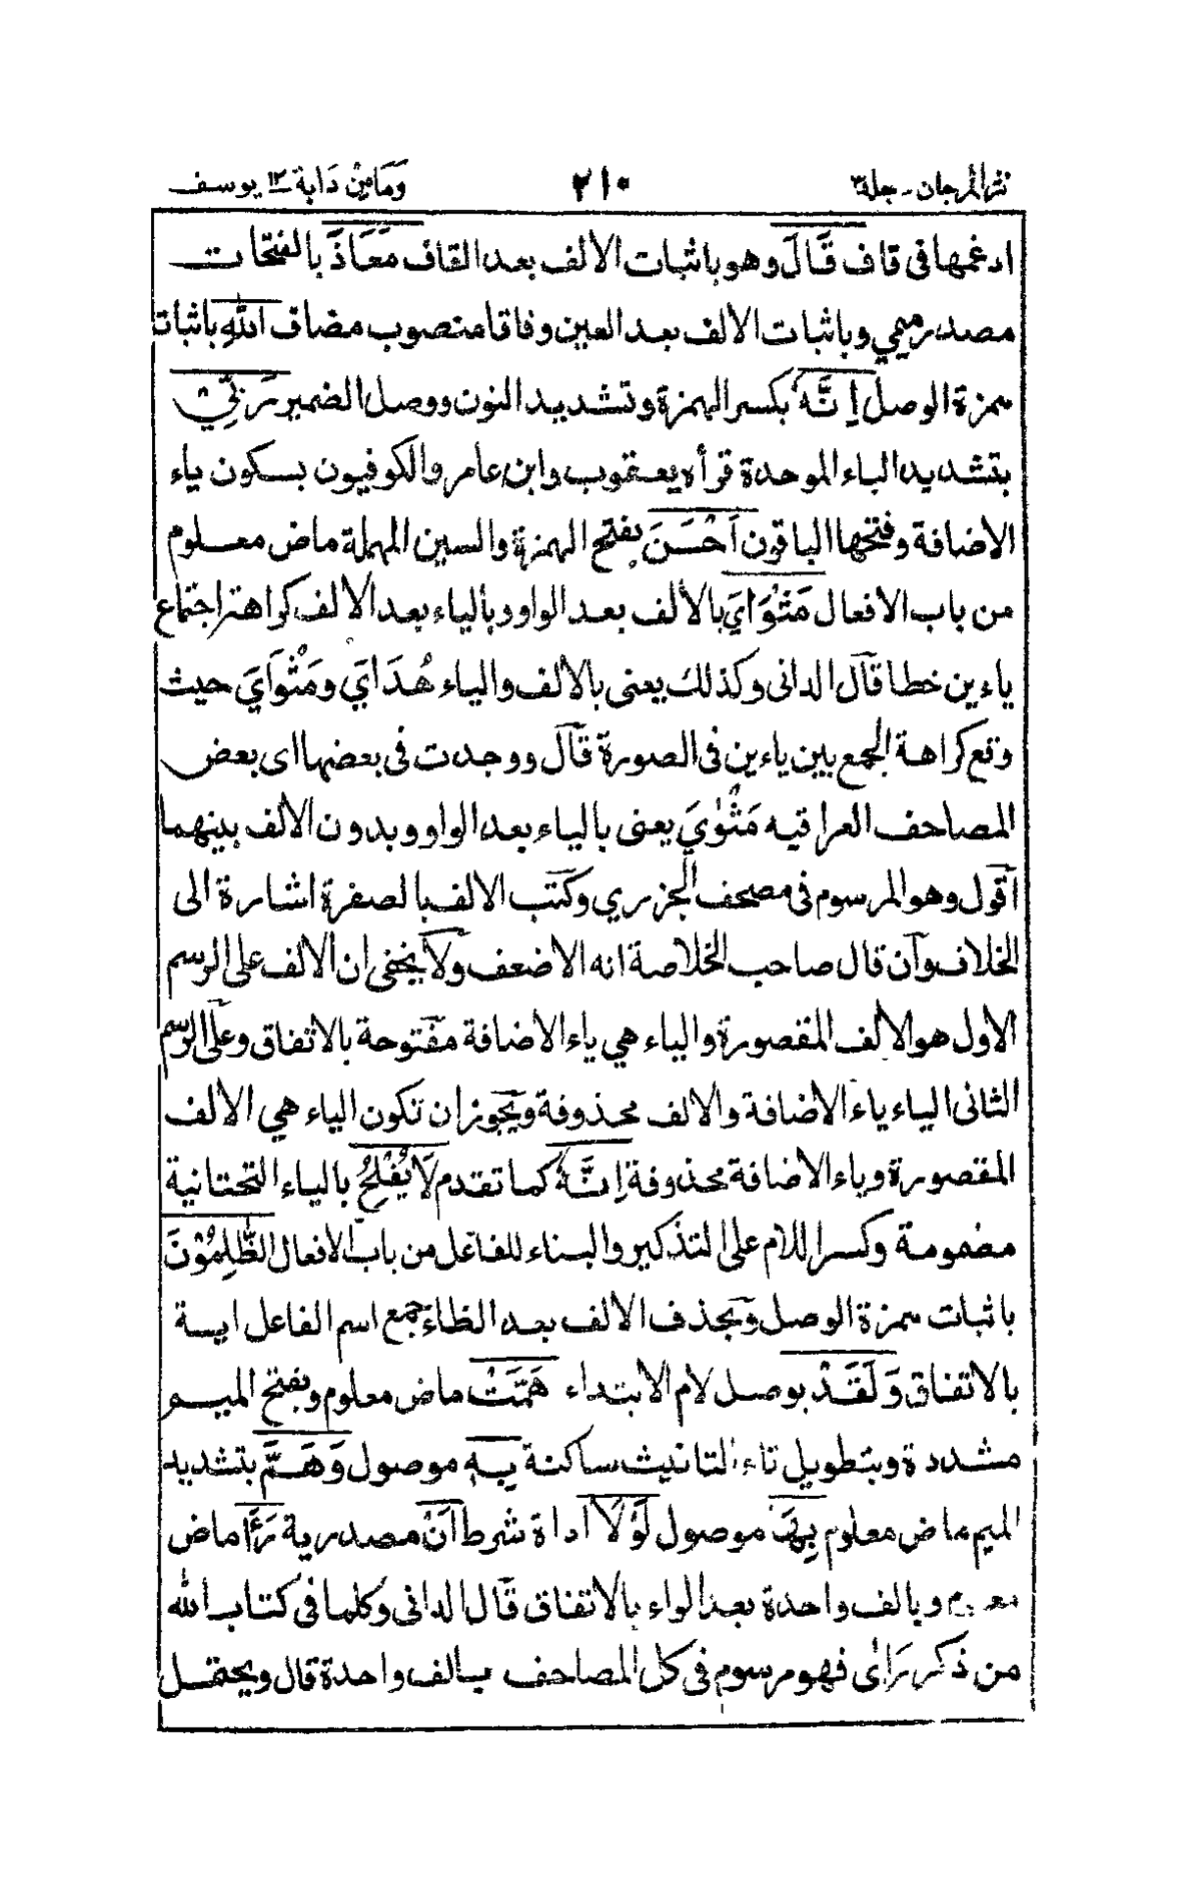 نثر المرجان - جلد ٣ ٢١٠ وَمَا مِنْ دَابة ١٢ يوسف
ادغمها فى قاف قَالَ وهو باثبات الالف بعد القاف مَعَاذَ بالفتحات
مصدر ميمي وباثبات الالف بعد العين وفاقا منصوب مضاف اللهِ باثبات
همزة الوصل اِنَّهٗ بكسر الهمزة وتشديد النون ووصل الضمير رَبِّيْ
بتشديد الباء الموحدة قرأه يعقوب وابن عامر والكوفيون بسكون ياء
الاضافة وفتحها الباقون اَحْسَنَ بفتح الهمزة والسين المهملة ماض معلوم
من باب الافعال مَثْوَايَ بالألف بعد الواو وبالياء بعد الالف كراهة اجتماع
ياءين خطا قال الدانى وكذلك يعنى بالالف والياء هُدَايَ ومَثْوَايَ حيث
وقع كراهة الجمع بين ياءين فى الصورة قال ووجدت فى بعضها اى بعض
المصاحف العراقيه مَثْوٰيَ يعنى بالياء بعد الواو وبدون الالف بينهما
اقول وهو المرسوم فى مصحف الجزري وكتب الالف بالصفرة اشارة الى
الخلاف وان قال صاحب الخلاصة انه الاضعف ولا يخفى ان الالف على الرسم
الاول هو الالف المقصورة والياء هي ياء الاضافة مفتوحة بالاتفاق وعلى الرسم
الثانى الياء ياء الاضافة والالف محذوفة ويجوز ان تكون الياء هي الالف
المقصورة وياء الاضافة محذوفة اِنَّهٗ كما تقدم لَا يُفْلِحُ بالياء التحتانية
مضمومة وكسر اللام على التذكير والبناء للفاعل من باب الافعال الظّٰلِمُوْنَ
باثبات همزة الوصل وبحذف الالف بعد الظاء جمع اسم الفاعل اية
بالاتفاق وَلَقَدْ بوصل لام الابتداء هَمَّتْ ماض معلوم وبفتح الميم
مشددة وبتطويل تاء التانيث ساكنة بِهٖ موصول وَهَمَّ بتشديد
الميم ماض معلوم بِهَا موصول لَوْلَا اداة شرط اَنْ مصدرية رَءَا ماض
معلوم وبالف واحدة بعد الراء بالاتفاق قال الدانى وكلما فى كتاب الله
من ذكر رَاٰى فهو مرسوم فى كل المصاحف بالف واحدة قال ويحتمل